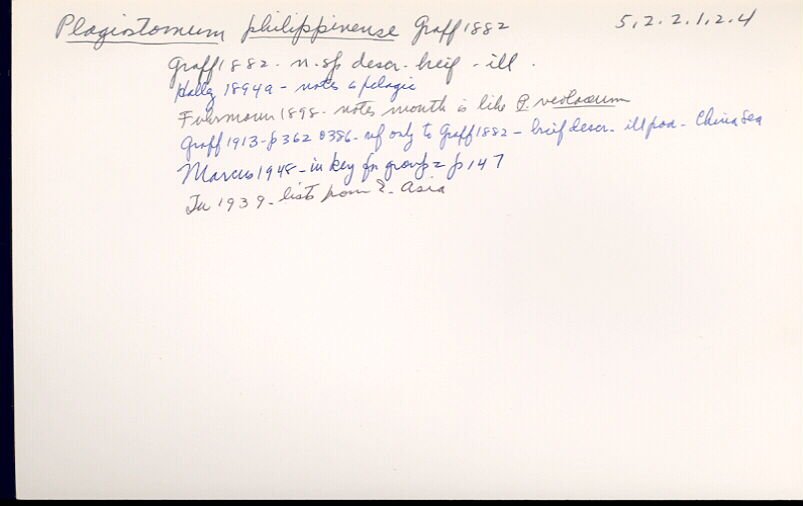 Plagiostomum philippinense Graff 1882 5.2.2.1.2.4
Graff 1882 - n.sp descr. breif - ill.
Hallez 1894a - notes a pelagic
Fuhrmann 1898 - notes mouth is like P.
Graff 1913 - p362 @386 - ref only to Graff 1882 - brief descr. ill poor - China Sea
Marcus 1948 - in key for group 2 p 147
Tu 1939 - lists from E. Asia